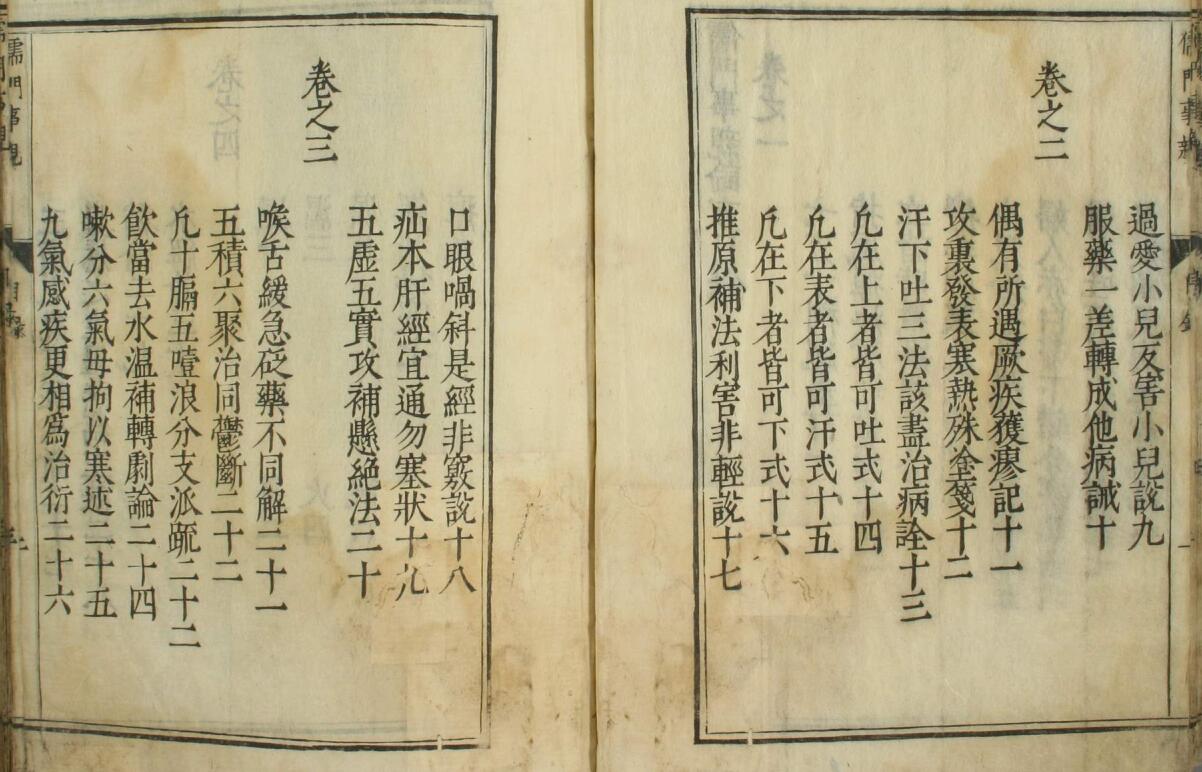 過愛小兒反害小兒說九
服藥一差轉成他病誡十
卷之二
偶有所遇厥疾獲瘳記十一
攻裏發表寒熱殊塗箋十二
汗下吐三法該盡治病詮十三
凡在上者皆可吐式十四
凡在表者皆可汗式十五
凡在下者皆可下式十六
推原補法利害非輕說十七
口眼喎斜是經非竅說十八
疝本肝經宜通勿塞狀十九
五虛五實攻補懸絕法二十
卷之三
喉舌緩急砭藥不同解二十一
五積六聚治同鬱斷二十二
凡十膈五噎浪分支派疏二十二
飲當去水温補轉劇論二十四
嗽分六氣毋拘以寒述二十五
九氣感疾更相爲治衍二十六
儒門事親